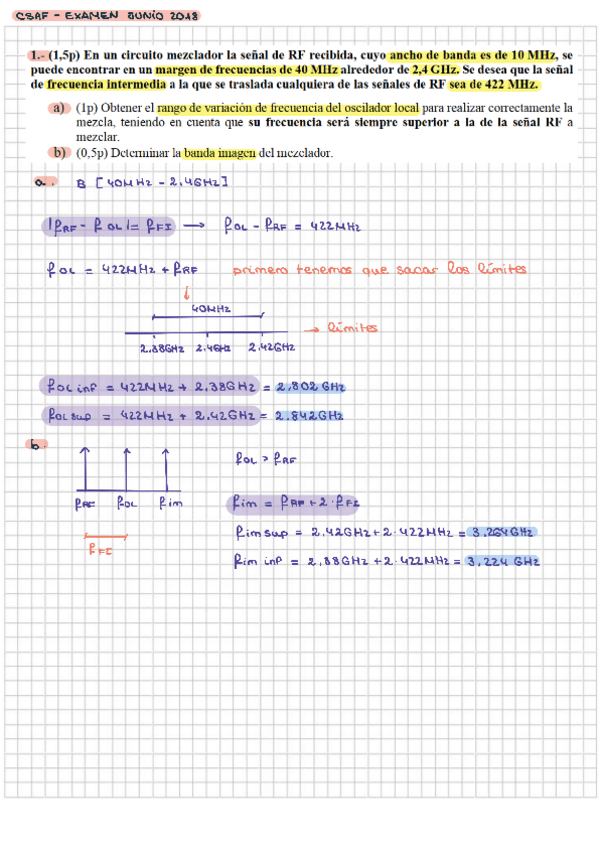 CSAF - EXAMEN JUNIO 2018
1.- (1,5p) En un circuito mezclador la señal de RF recibida, cuyo ancho de banda es de 10 MHz, se
puede encontrar en un margen de frecuencias de 40 MHz alrededor de 2,4 GHz. Se desea que la señal
de frecuencia intermedia a la que se traslada cualquiera de las señales de RF sea de 422 MHz.
a) (1p) Obtener el rango de variación de frecuencia del oscilador local para realizar correctamente la
mezcla, teniendo en cuenta que su frecuencia será siempre superior a la de la señal RF a
mezclar.
b) (0,5p) Determinar la banda imagen del mezclador.
a. B [40MHz - 2,4GHz]
|fRF - fOL| = fFI → fOL - fRF = 422MHz
fOL = 422MHz + fRF primero tenemos que sacar los límites
40MHz
→ límites
2.38GHz 2.4GHz 2.42GHz
fOL inf = 422MHz + 2.38GHz = 2,802 GHz
fOL sup = 422MHz + 2.42GHz = 2.842GHz
b.
fOL > fRF
fRF fOL fim
fim = fRF + 2·fFI
fFI
fim sup = 2,42GHz + 2·422MHz = 3.264GHz
fim inf = 2,38GHz + 2·422MHz = 3,224 GHz